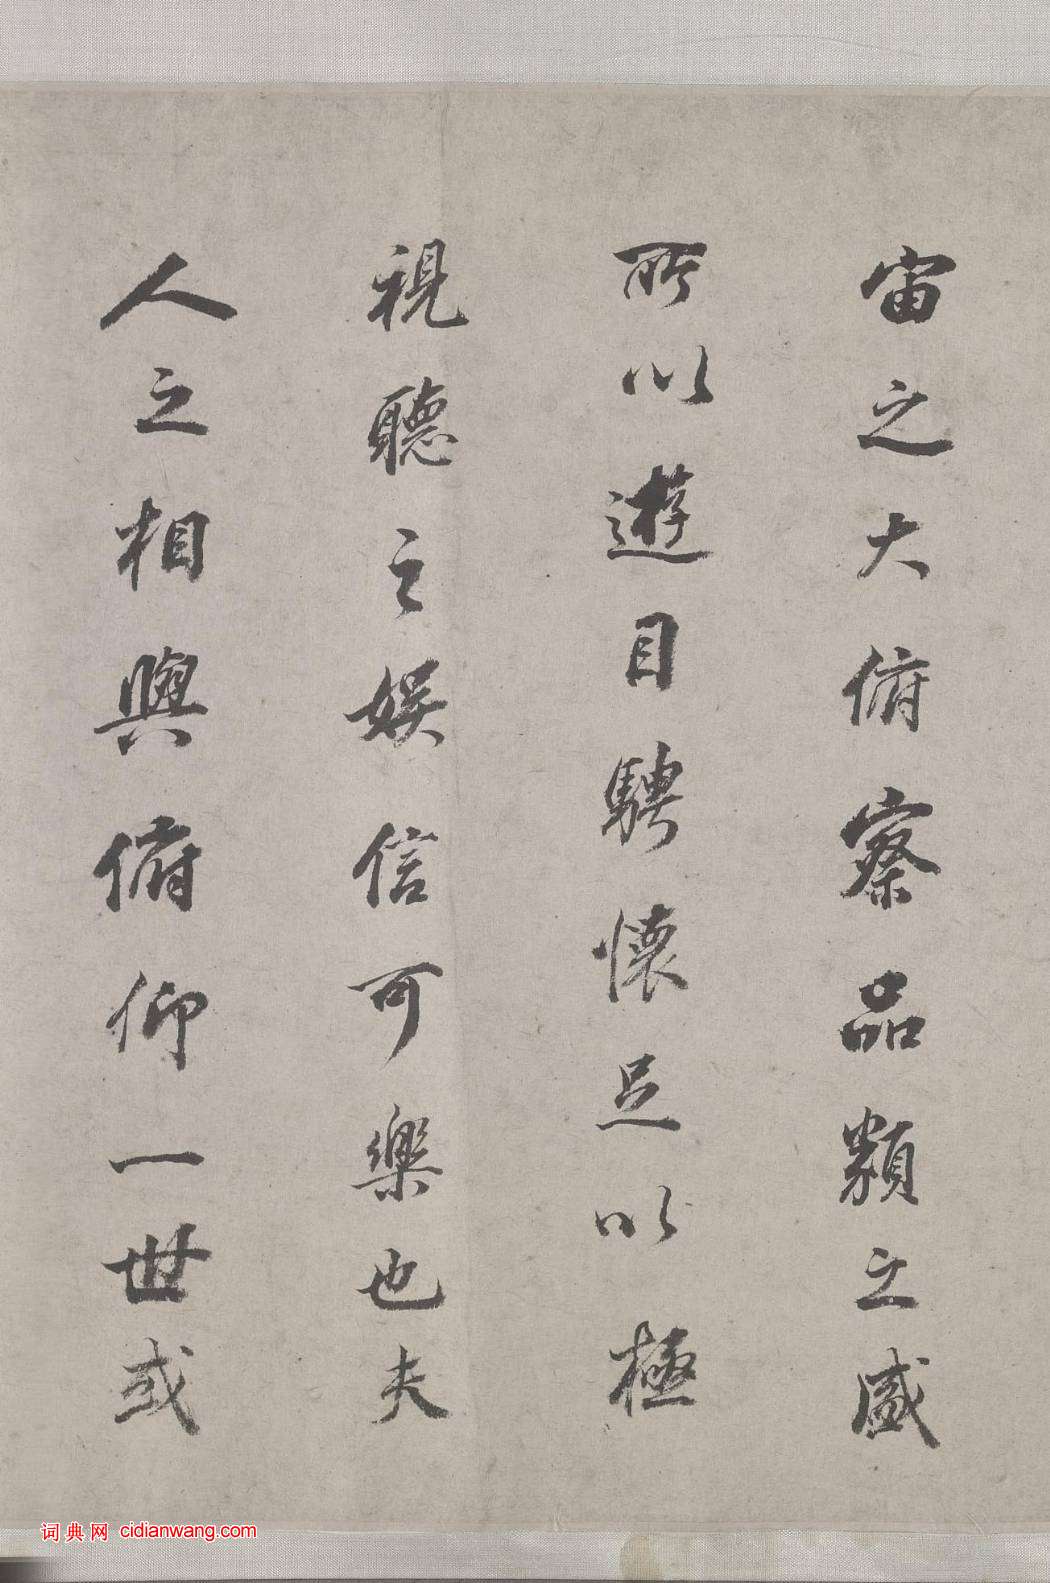 宙之大俯察品類之盛
所以遊目騁懷足以極
視聽之娛信可樂也夫
人之相與俯仰一世或
词典网 cidianwang.com